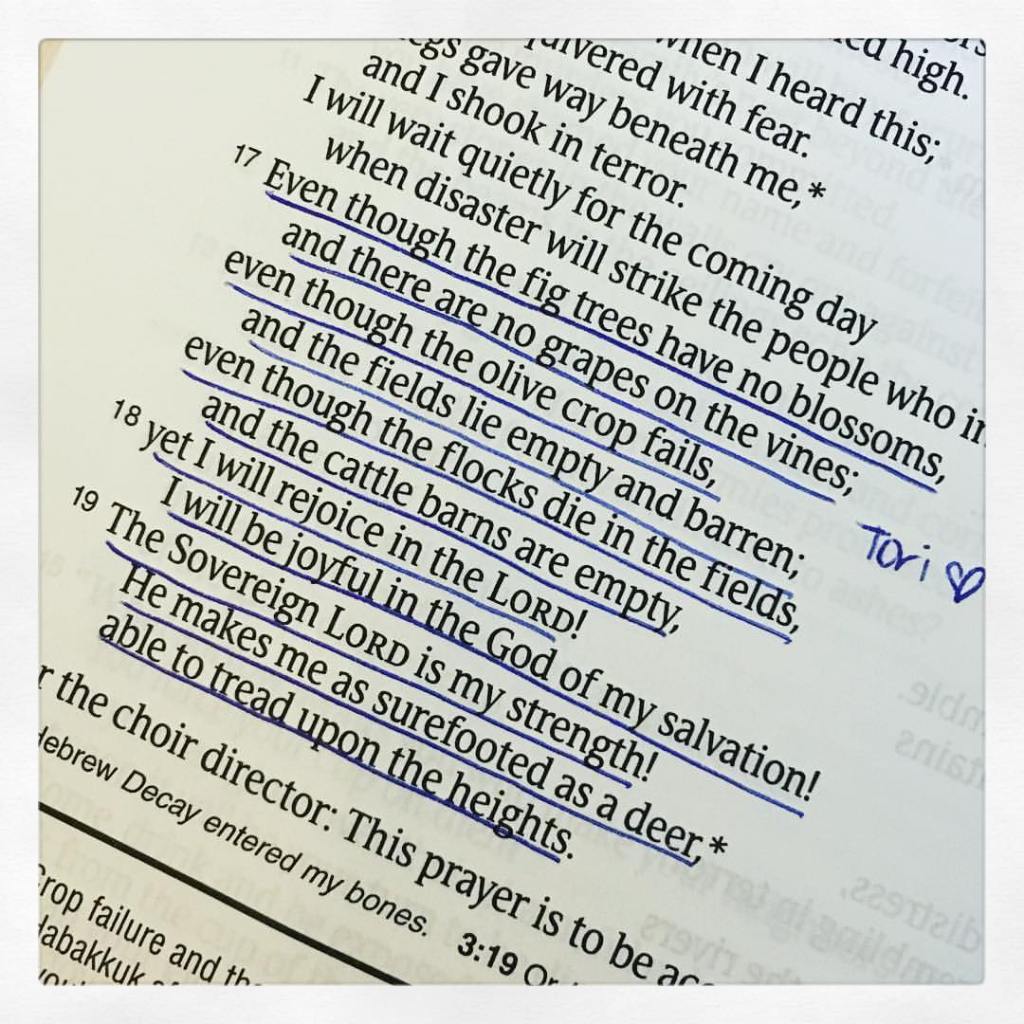 high.
when I heard this;
quivered with fear.
legs gave way beneath me,*
and I shook in terror.
I will wait quietly for the coming day
when disaster will strike the people who
17 Even though the fig trees have no blossoms,
and there are no grapes on the vines;
even though the olive crop fails,
and the fields lie empty and barren;
even though the flocks die in the fields,
and the cattle barns are empty,
18 yet I will rejoice in the LORD!
I will be joyful in the God of my salvation!
19 The Sovereign LORD is my strength!
He makes me as surefooted as a deer,*
able to tread upon the heights.
Tori ♡
the choir director: This prayer is to be
Hebrew Decay entered my bones. 3:19 Or
Crop failure and
Habakkuk